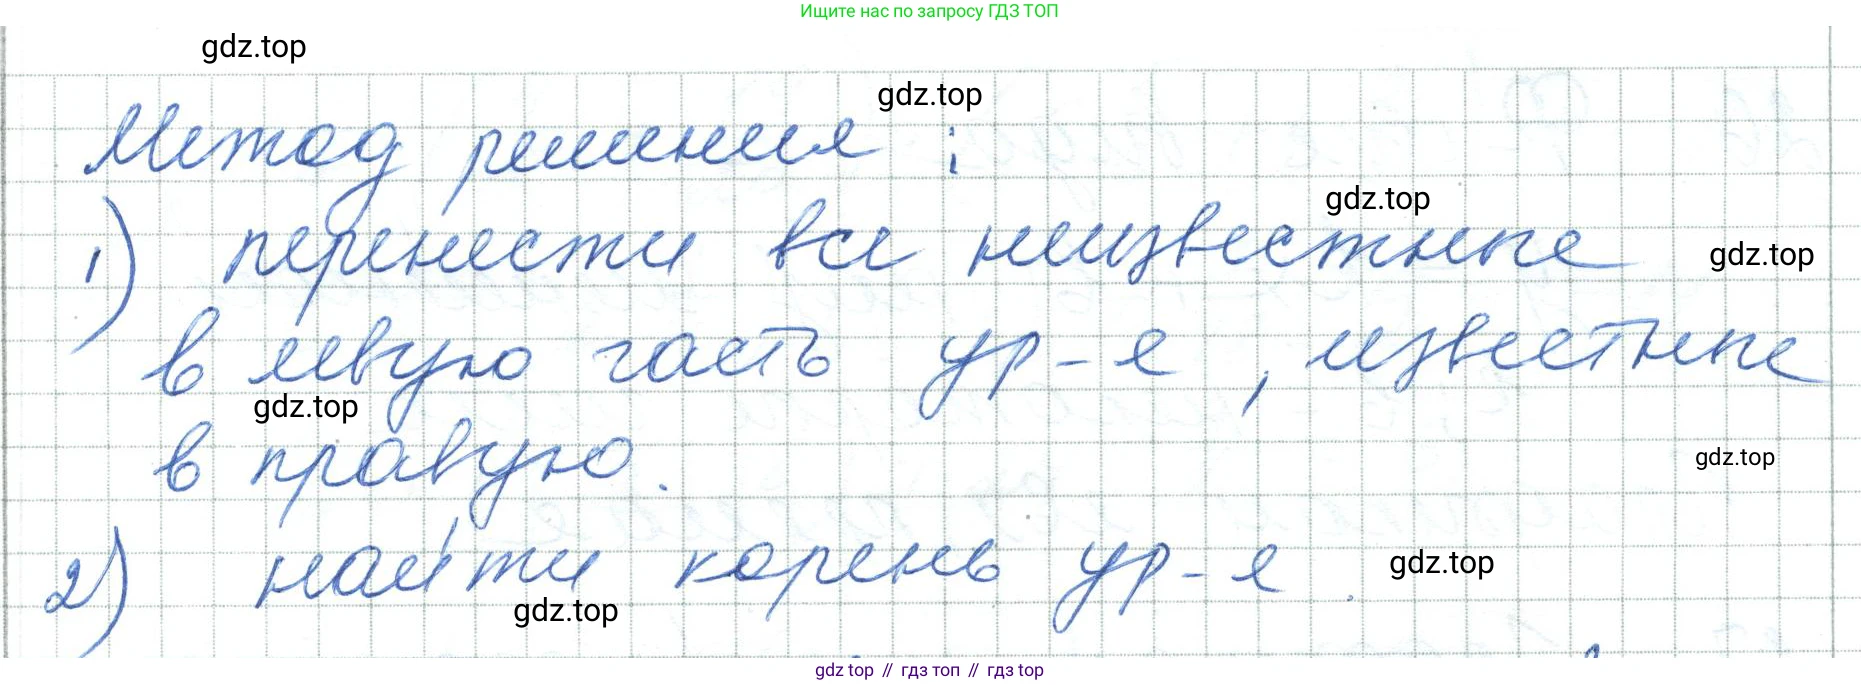 Ищите нас по запросу ГДЗ ТОП
gdz.top
gdz.top
Метод решения:
gdz.top
1) перенести все неизвестные
gdz.top
в левую часть ур-я, известные
gdz.top
в правую.
gdz.top
2) найти корень ур-я.
gdz.top
gdz.top
gdz top // гдз топ // гдз top